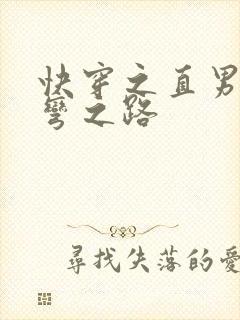 快穿之直男
彎之路
尋找失落的愛